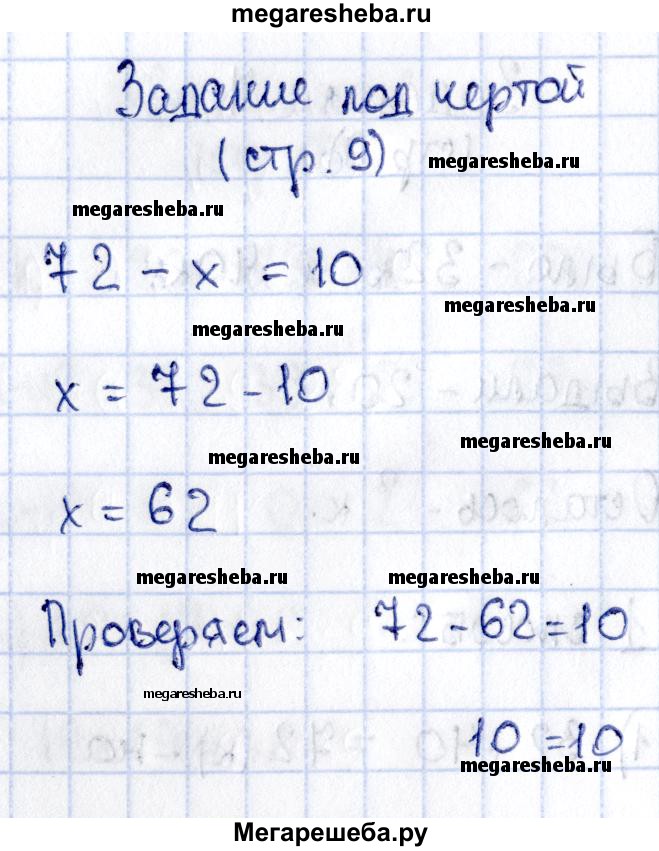 megaresheba.ru
Задание под чертой
(стр. 9)
megaresheba.ru
megaresheba.ru
72 - x = 10
megaresheba.ru
megaresheba.ru
x = 72 - 10
megaresheba.ru
megaresheba.ru
x = 62
megaresheba.ru
megaresheba.ru
Проверяем: 72 - 62 = 10
megaresheba.ru
10 = 10
megaresheba.ru
Мегарешеба.ру